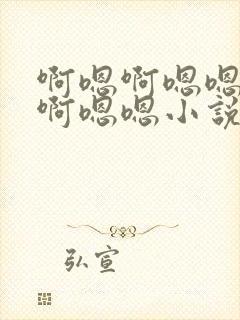 啊嗯啊嗯嗯
啊嗯嗯小說
弘宣